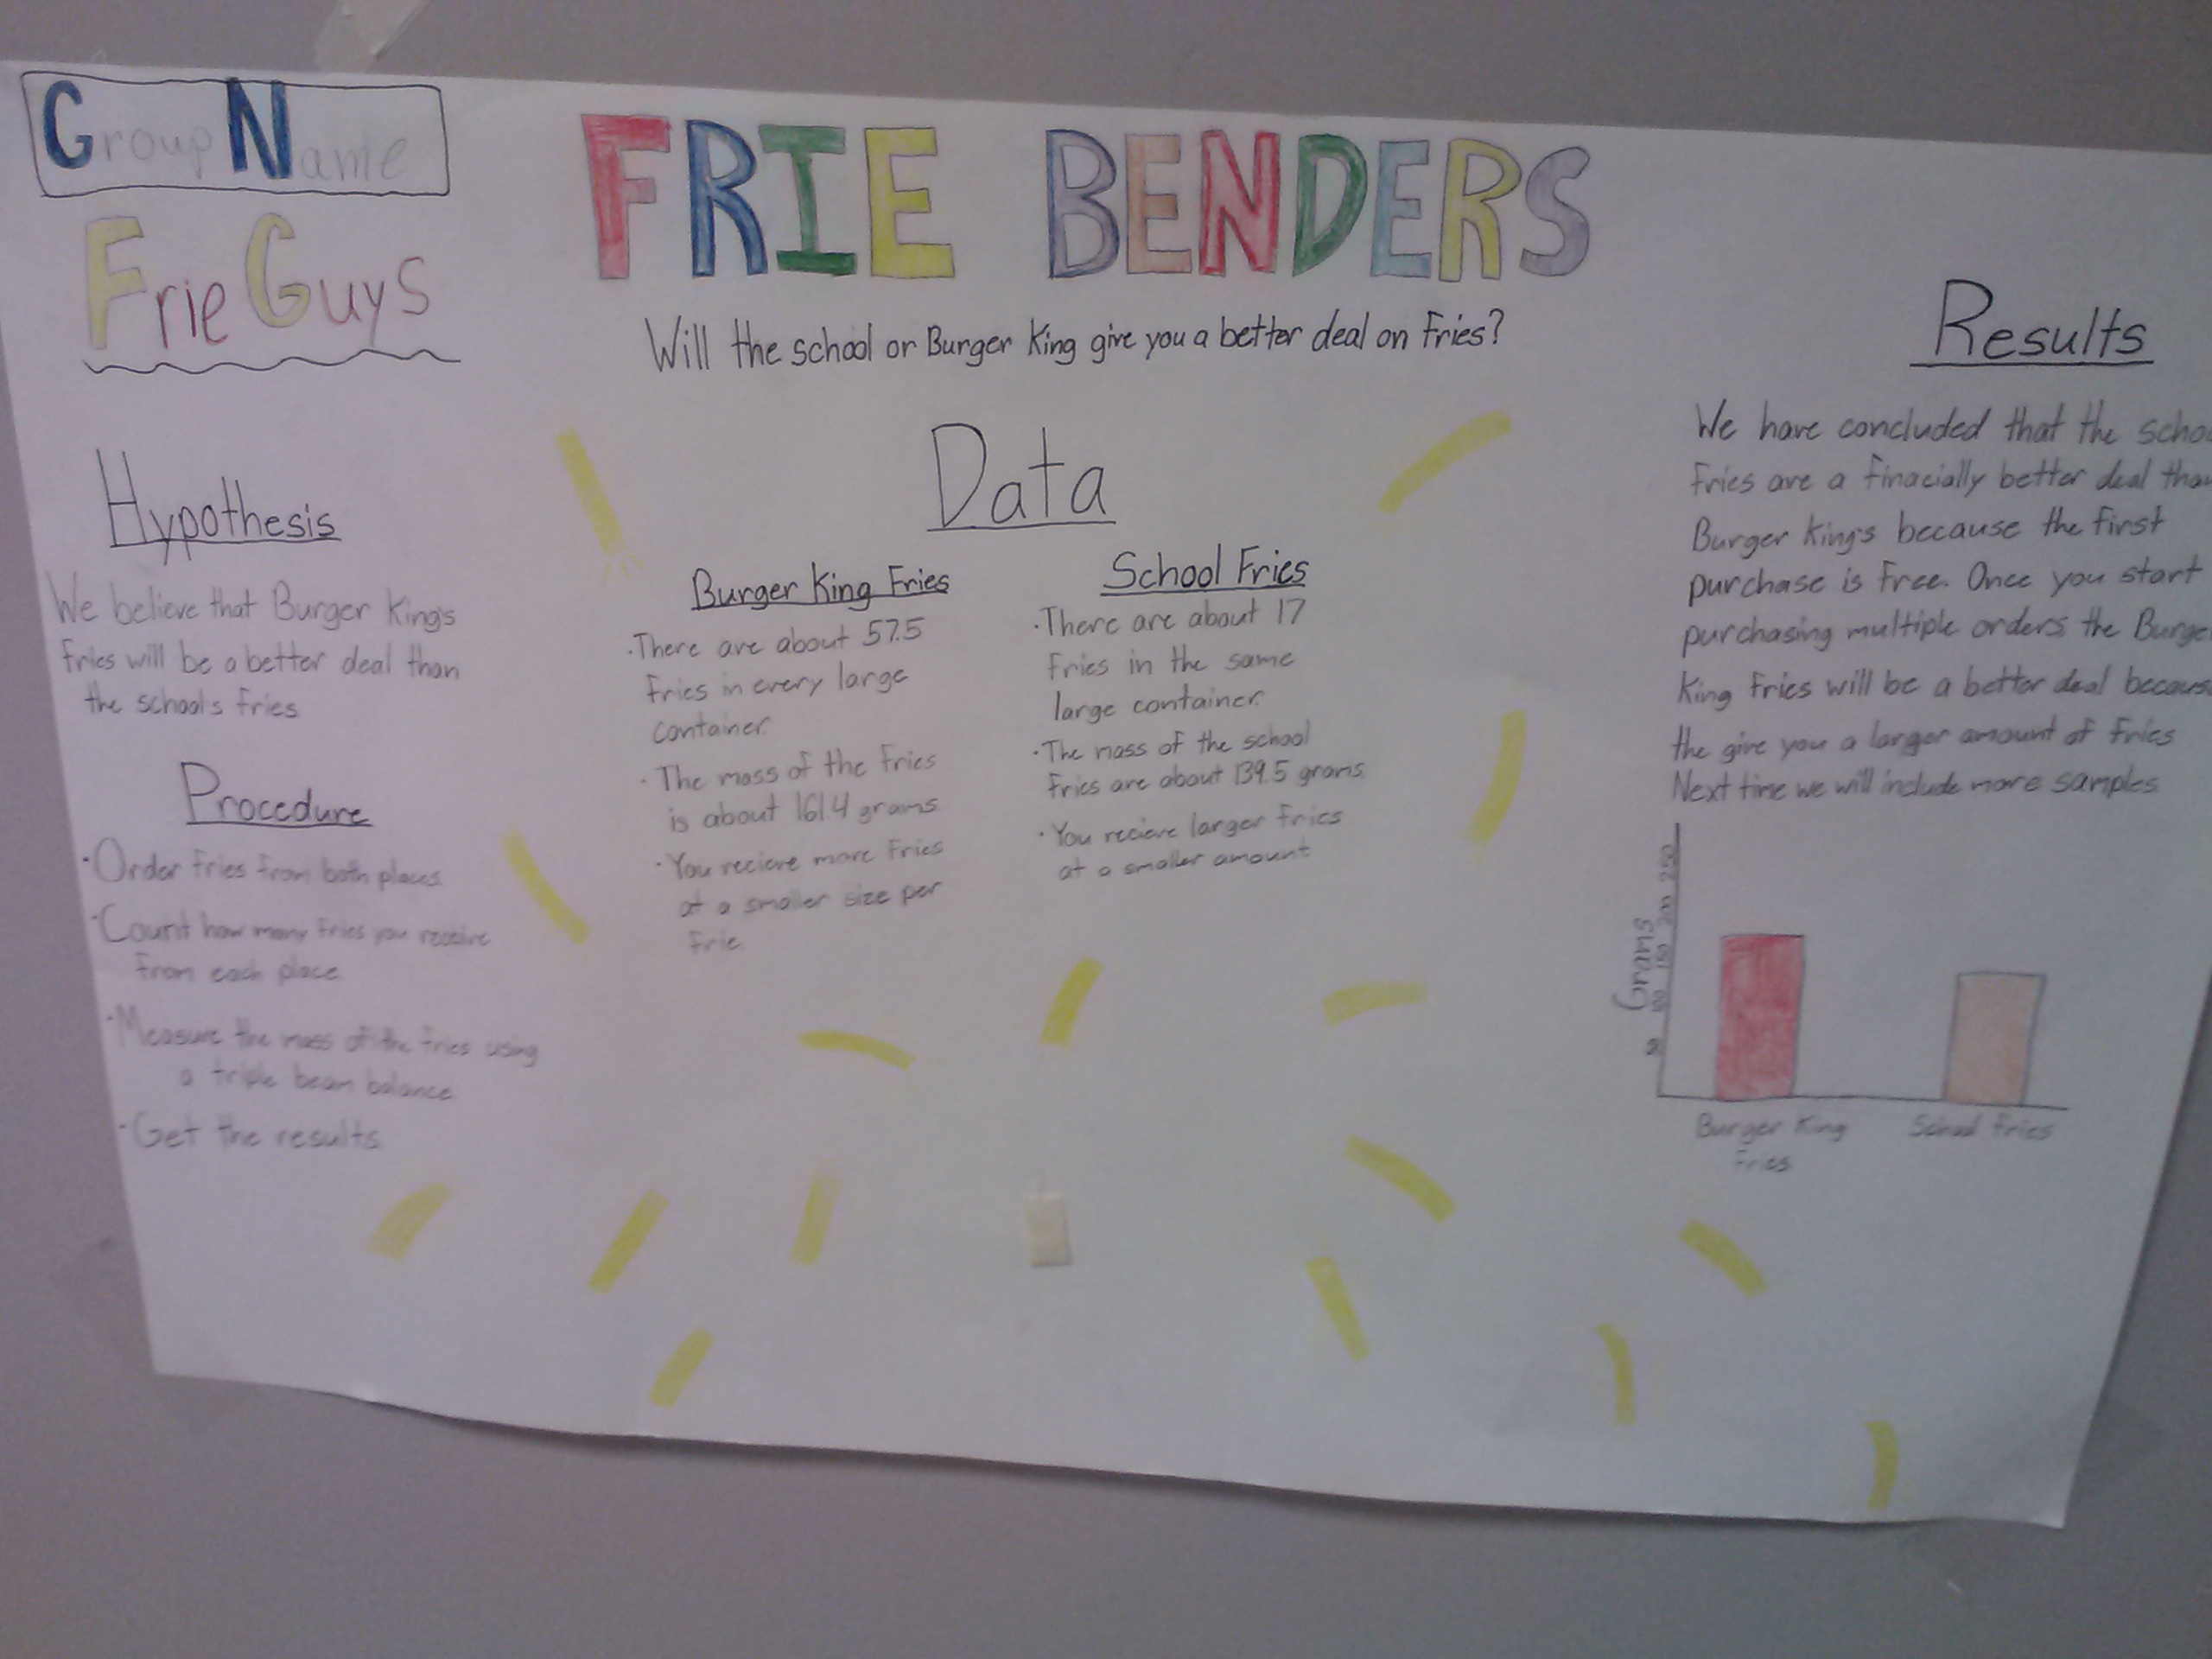 Group Name
Frie Guys
FRIE BENDERS
Will the school or Burger King give you a better deal on Fries?
Hypothesis
We believe that Burger King's
Fries will be a better deal than
the schools fries
Procedure
·Order fries from both places.
·Count how many fries you receive
from each place.
·Measure the mass of the fries using
a triple beam balance
·Get the results.
Data
Burger King Fries
·There are about 57.5
Fries in every large
container.
·The mass of the fries
is about 161.4 grams
·You recieve more fries
at a smaller size per
frie.
School Fries
·There are about 17
Fries in the same
large container.
·The mass of the school
Fries are about 139.5 grams.
·You recieve larger fries
at a smaller amount.
Results
We have concluded that the schoo
Fries are a finacially better deal than
Burger King's because the first
purchase is free. Once you start
purchasing multiple orders, the Burge
King fries will be a better deal becaus
the give you a larger amount of fries
Next time we will include more samples
Grams
50 100 150 200 250
Burger King
Fries
School Fries